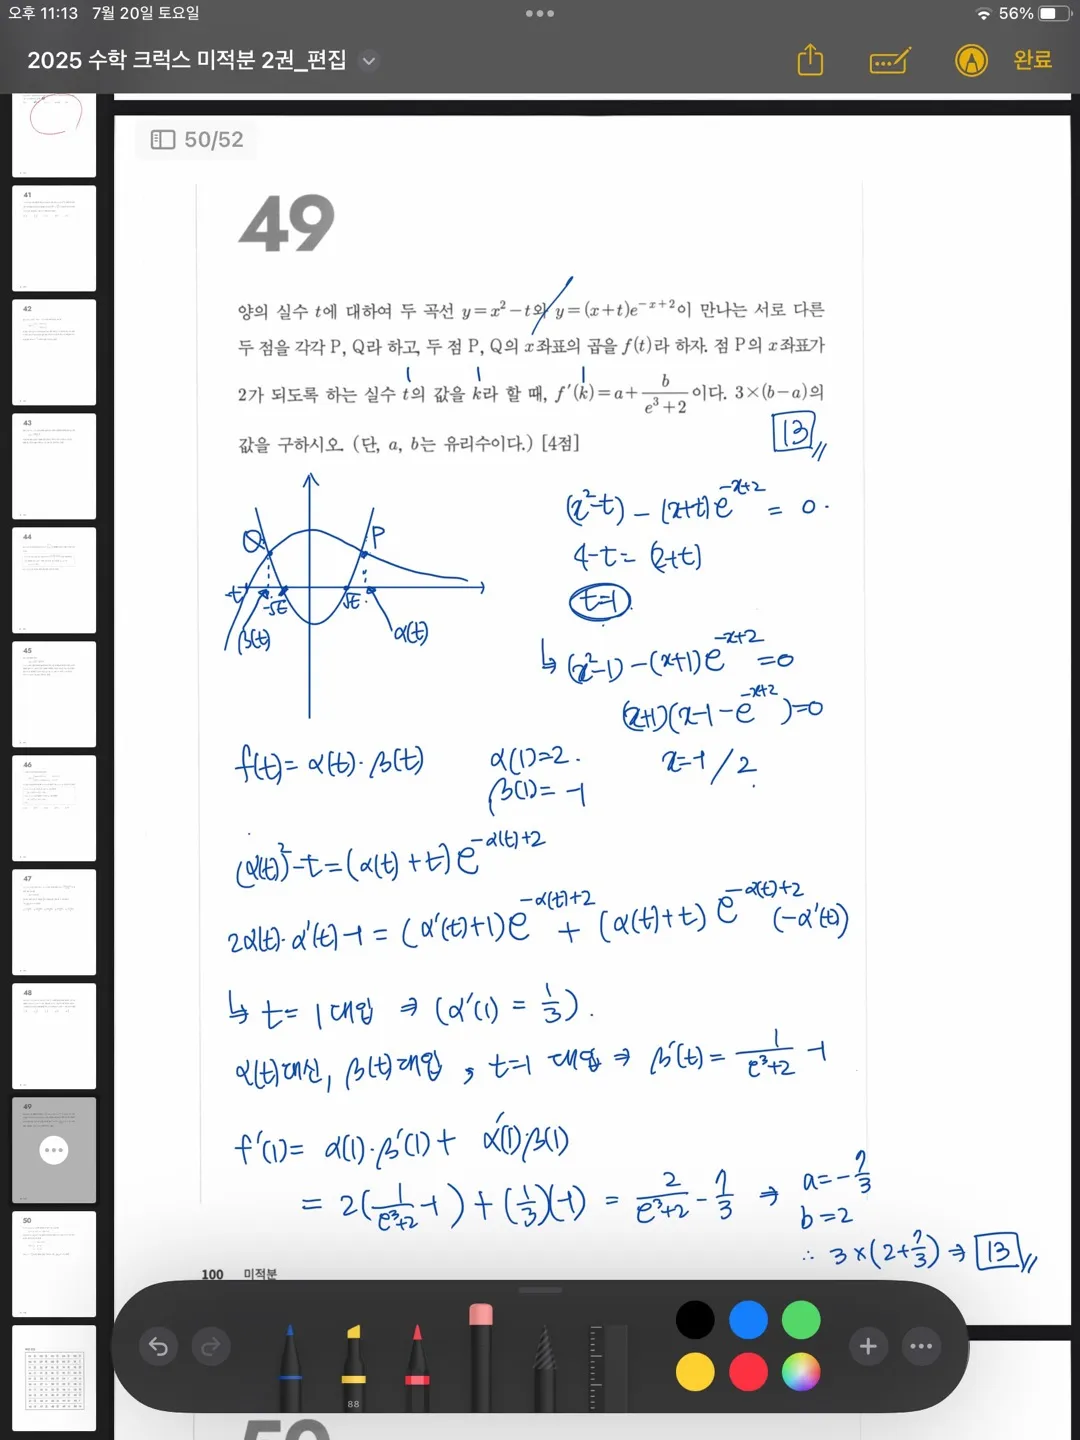 오후 11:13 7월 20일 토요일
56%
2025 수학 크럭스 미적분 2권_편집
완료
50/52
41
42
43
44
45
46
47
48
49
50
49
양의 실수 t에 대하여 두 곡선 y=x²-t와 y=(x+t)e^{-x+2}이 만나는 서로 다른
두 점을 각각 P, Q라 하고, 두 점 P, Q의 x좌표의 곱을 f(t)라 하자. 점 P의 x좌표가
2가 되도록 하는 실수 t의 값을 k라 할 때, f'(k)=a+\frac{b}{e³+2}이다. 3×(b-a)의
값을 구하시오. (단, a, b는 유리수이다.) [4점]
1 1 1
13
Q P
-t -√t √t
β(t) α(t)
(x²-t) - (x+t)e^{-x+2} = 0.
4-t = (2+t)
t=1
↳ (x²-1) - (x+1)e^{-x+2} = 0
(x+1)(x-1-e^{-x+2})=0
x=-1 / 2
f(t)= α(t)·β(t)
α(1)=2.
β(1)= -1
(α(t))²-t=(α(t)+t)e^{-α(t)+2}
2α(t)·α'(t)-1 = (α'(t)+1)e^{-α(t)+2} + (α(t)+t)e^{-α(t)+2}(-α'(t))
↳ t=1 대입 ⇒ (α'(1) = \frac{1}{3}).
α(t)대신, β(t)대입, t=1 대입 ⇒ β'(t) = \frac{1}{e³+2} -1
f'(1)= α(1)·β'(1)+ α'(1)β(1)
= 2(\frac{1}{e³+2}-1)+(\frac{1}{3})(-1) = \frac{2}{e³+2} - \frac{7}{3} ⇒ a=-\frac{7}{3}
b=2
∴ 3×(2+\frac{7}{3}) ⇒ 13
100 미적분
88
50